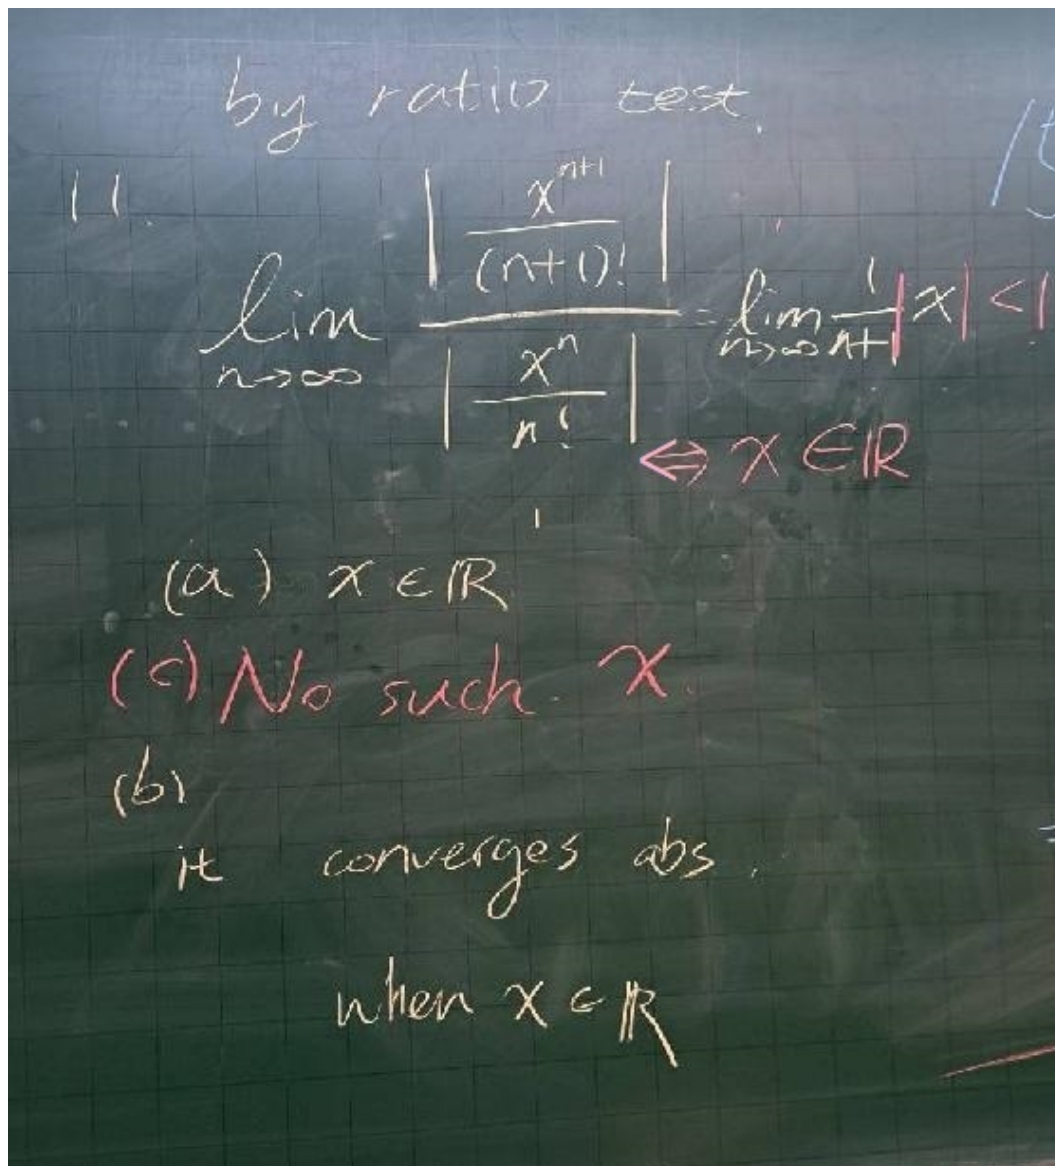 by ratio test.
11.
lim n→∞ |x^{n+1}/(n+1)!| / |x^n/n!| = lim n→∞ 1/n+1 |x| < 1
⇔ x ∈ ℝ
(a) x ∈ ℝ
(c) No such x.
(b)
it converges abs.
when x ∈ ℝ